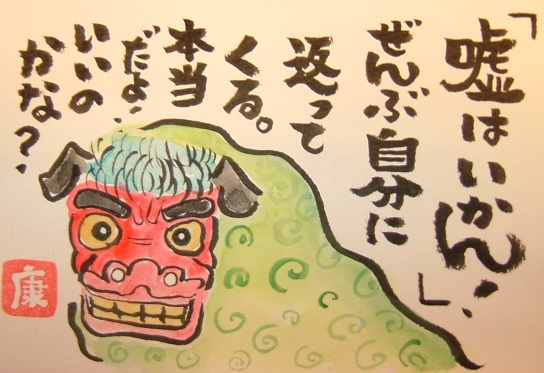 「嘘はいかん!」
ぜんぶ自分に
返って
くる。
本当
だよ!
いいの
かな?
康